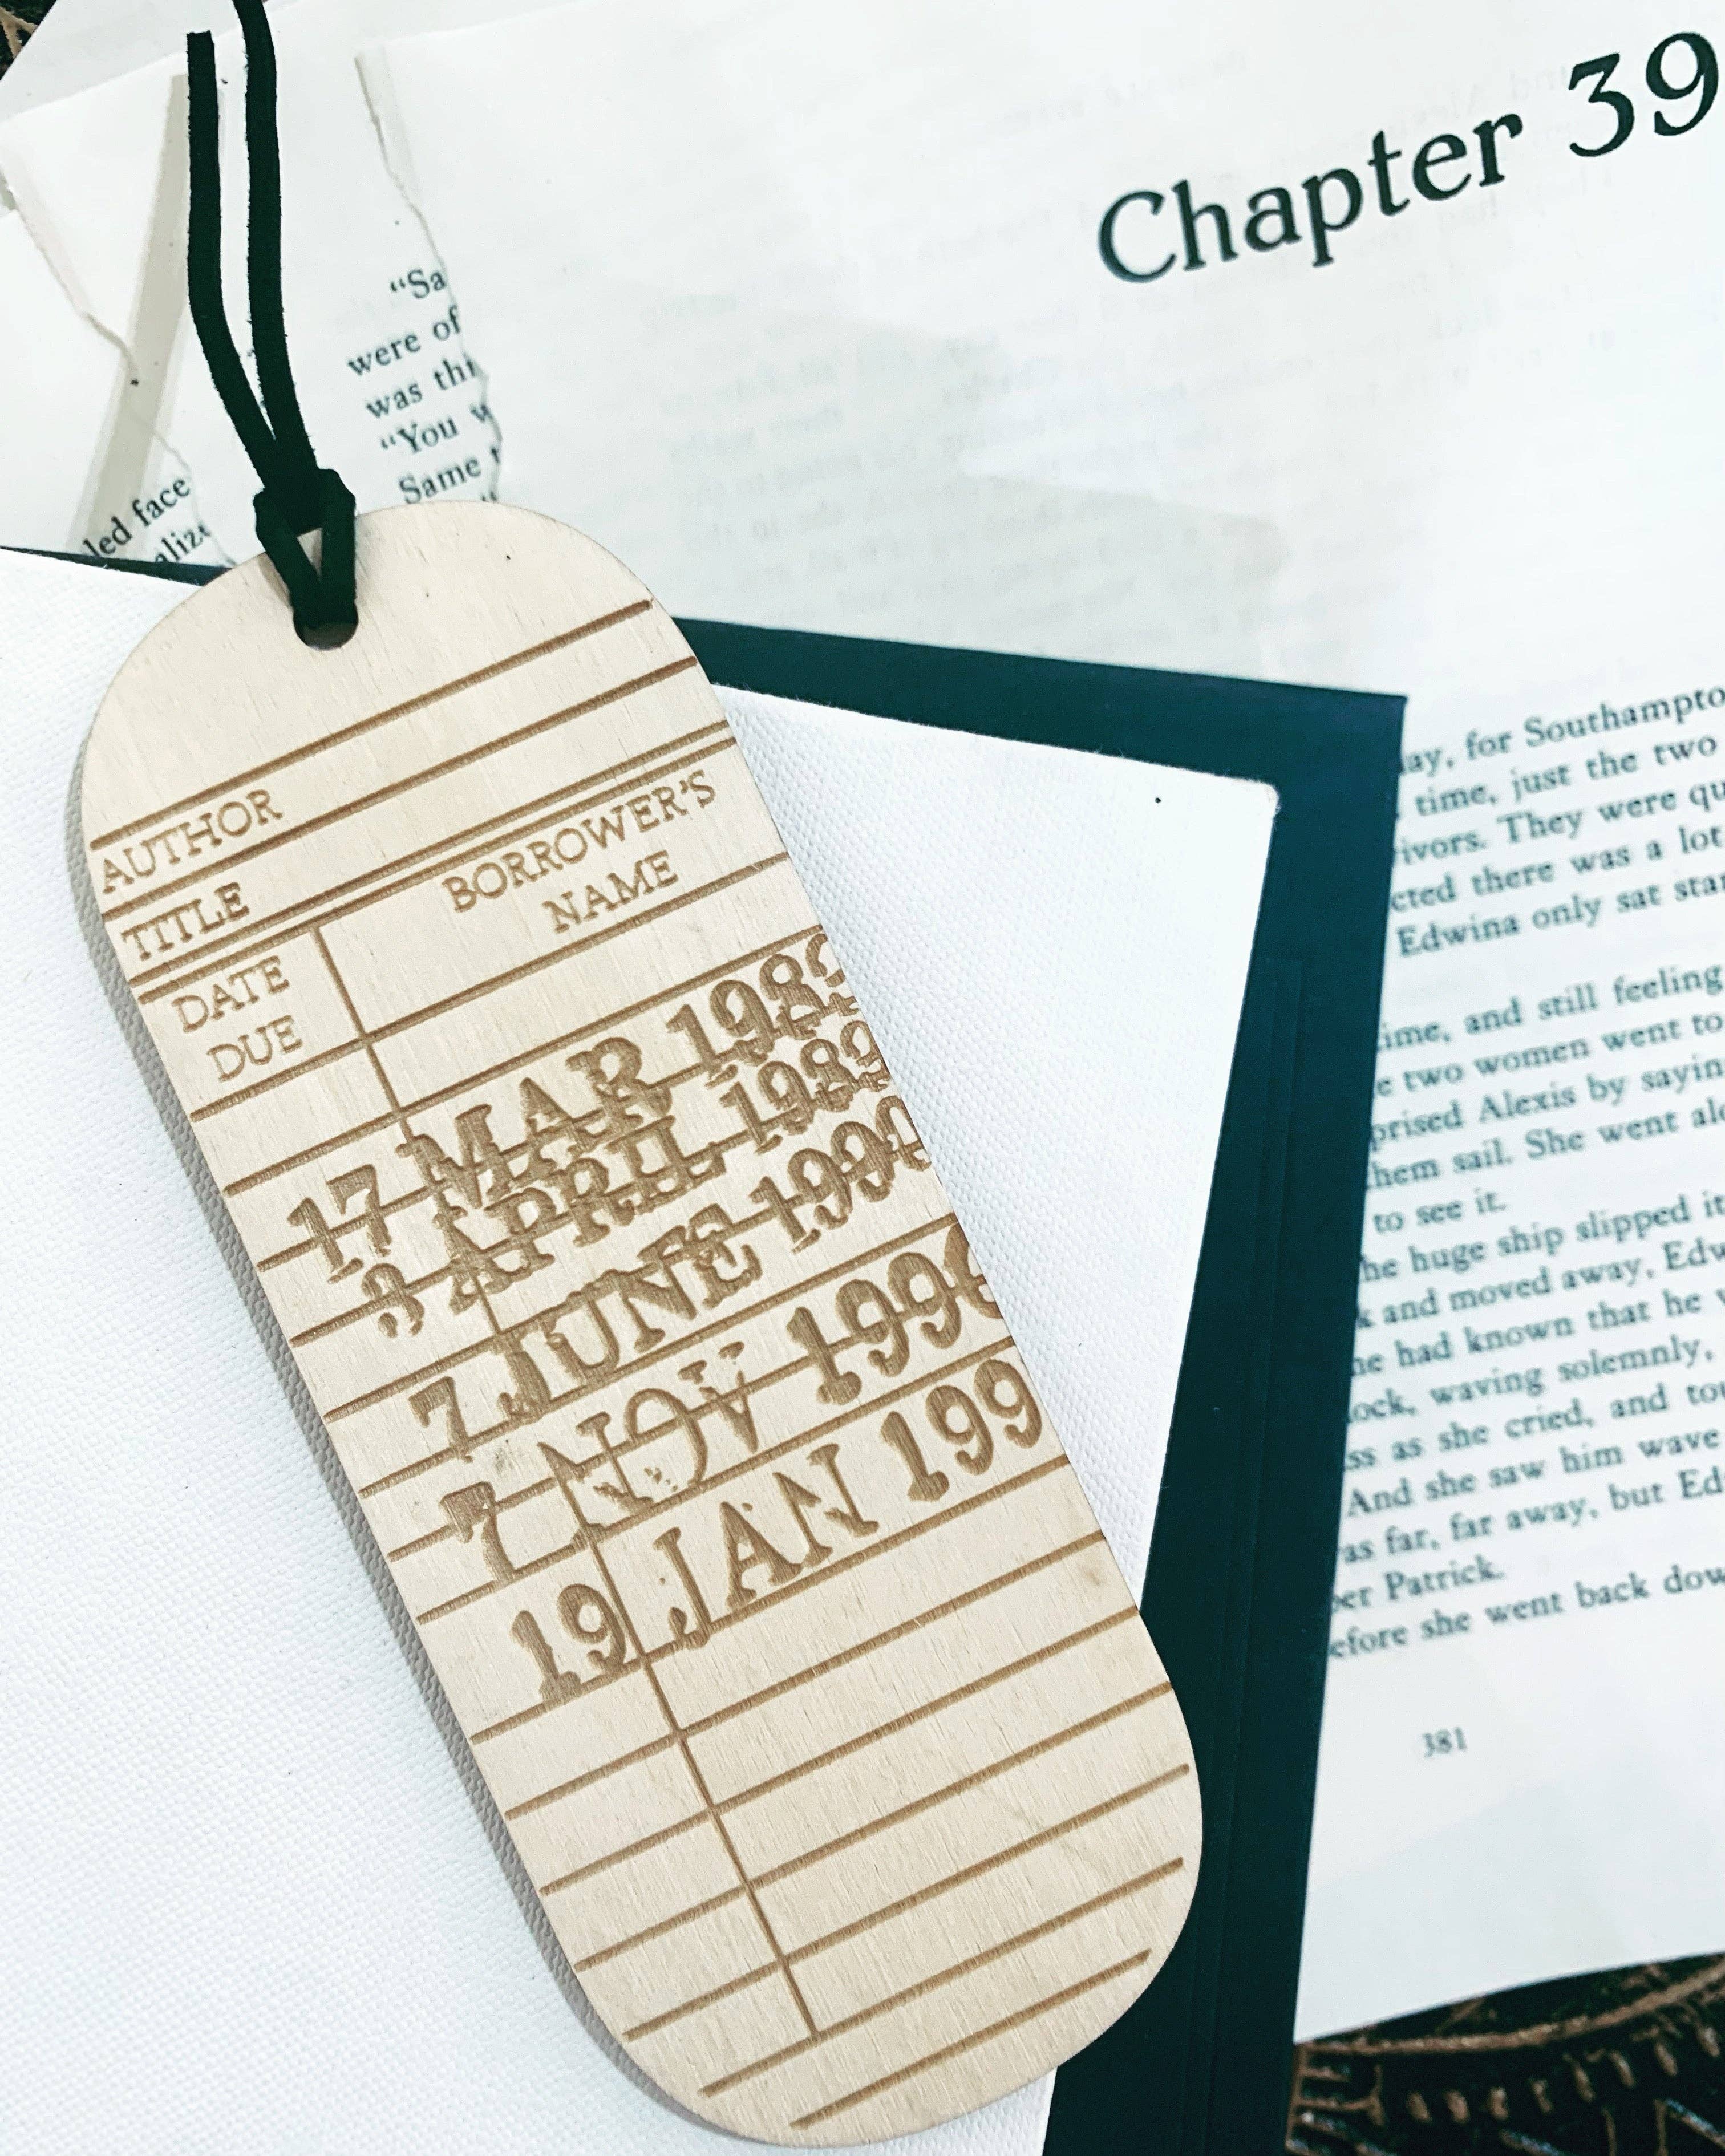 Chapter 39
“Sa
were of
was thi
“You w
Same t
led face
alize
AUTHOR
TITLE
DATE
DUE
BORROWER'S
NAME
17 MAR 198
3 APRIL 1989
7 JUNE 1990
7 NOV 199
19 JAN 199
ay, for Southampto
time, just the two
ivors. They were qu
cted there was a lot
Edwina only sat star
ime, and still feeling
e two women went to
prised Alexis by sayin
hem sail. She went alo
to see it.
he huge ship slipped it
k and moved away, Edw
he had known that he w
ock, waving solemnly,
ss as she cried, and tou
And she saw him wave
as far, far away, but Ed
er Patrick.
efore she went back dow
381